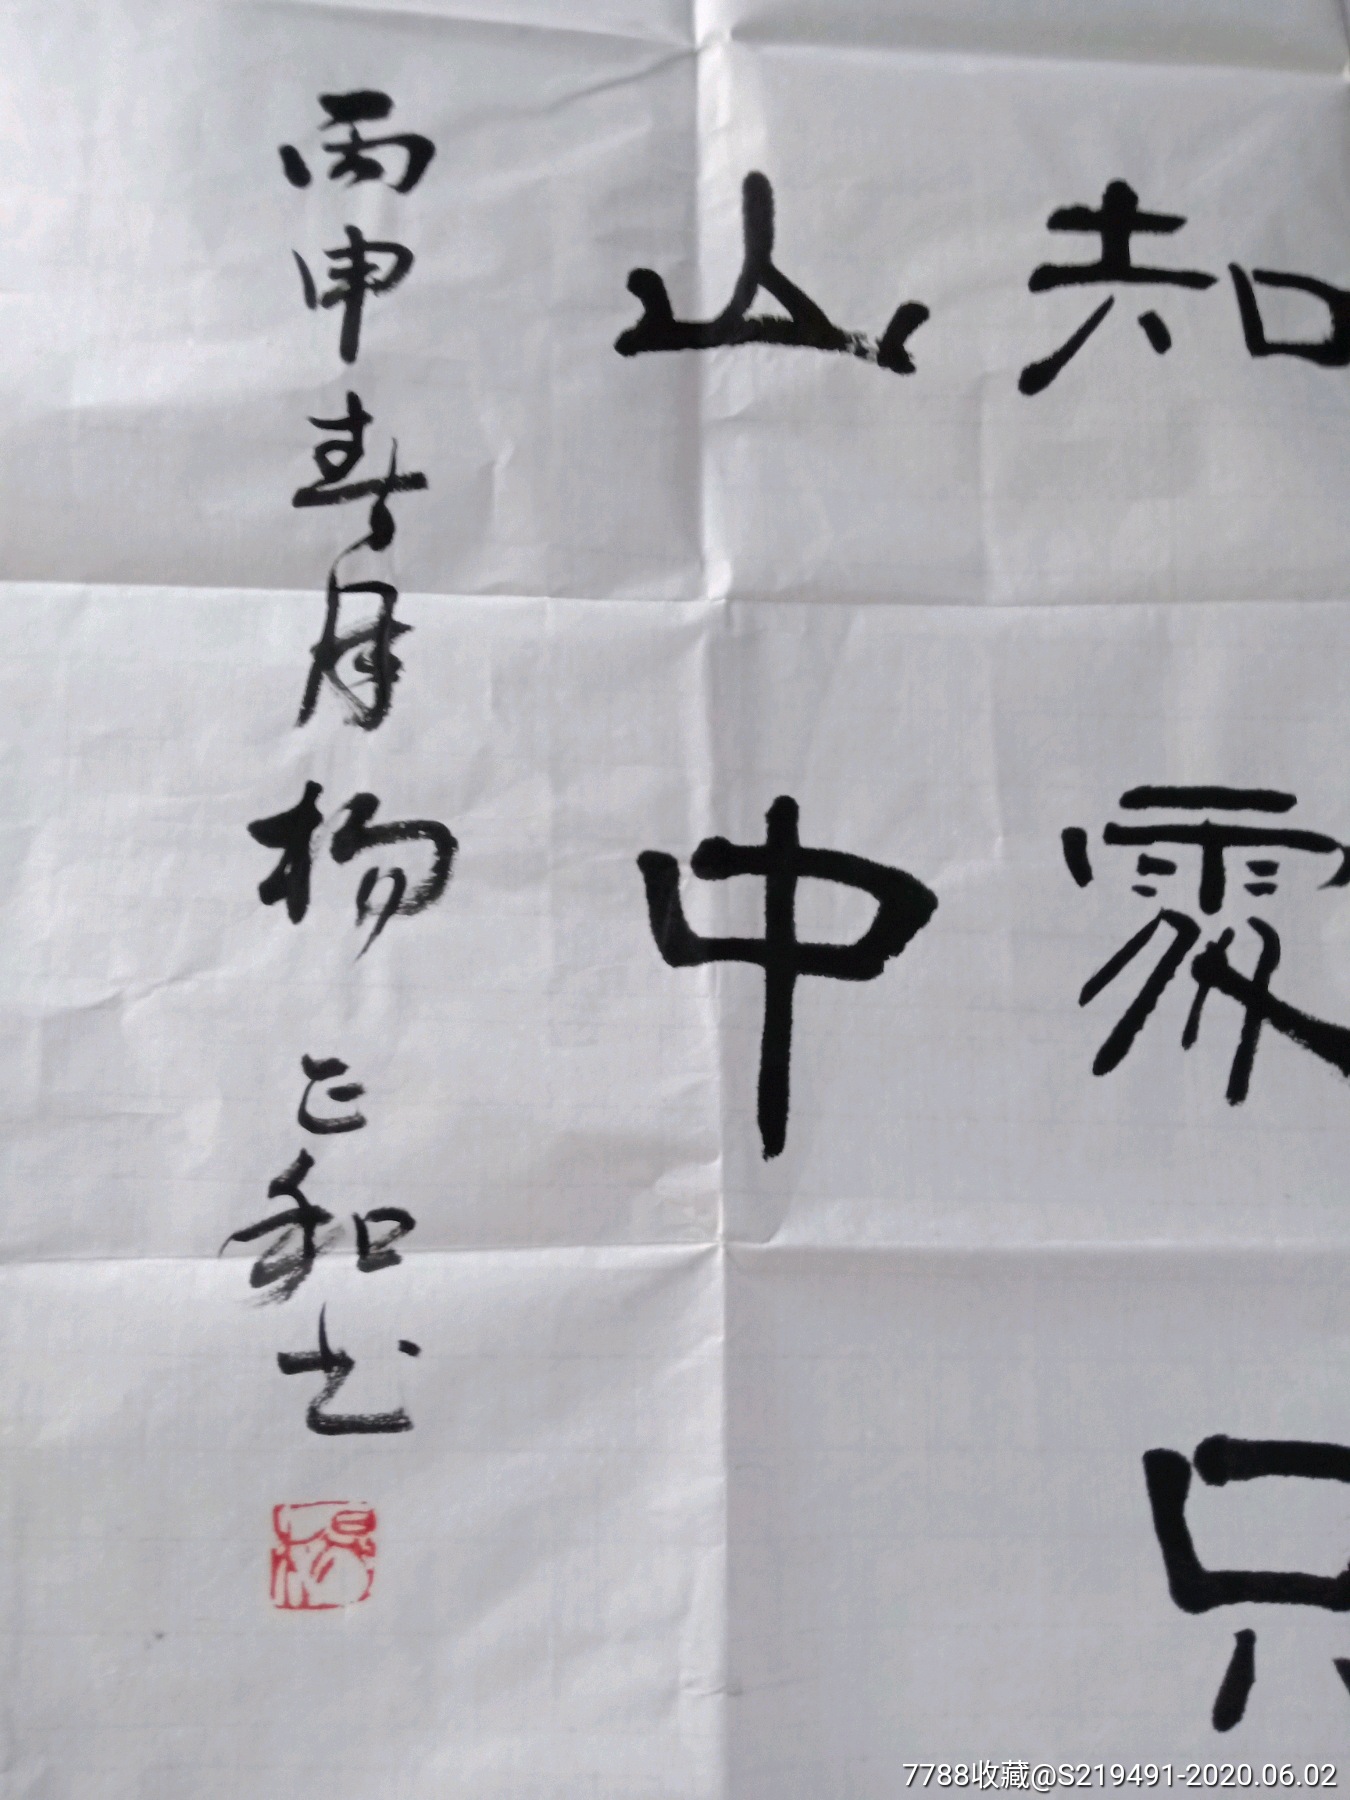 知處只
山中
丙申春月楊正和书
楊
7788收藏@S219491-2020.06.02